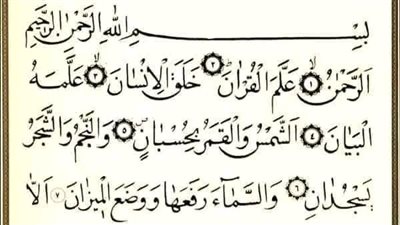 بِسْمِ اللهِ الرَّحْمٰنِ الرَّحِيْمِ
اَلرَّحْمٰنُ ۙ ١ عَلَّمَ الْقُرْاٰنَ ؕ ٢ خَلَقَ الْاِنْسَانَ ۙ ٣ عَلَّمَهُ
الْبَيَانَ ٤ اَلشَّمْسُ وَالْقَمَرُ بِحُسْبَانٍ ۪ ٥ وَالنَّجْمُ وَالشَّجَرُ
يَسْجُدَانِ ٦ وَالسَّمَآءَ رَفَعَهَا وَوَضَعَ الْمِيْزَانَ ٧ اَلَّا